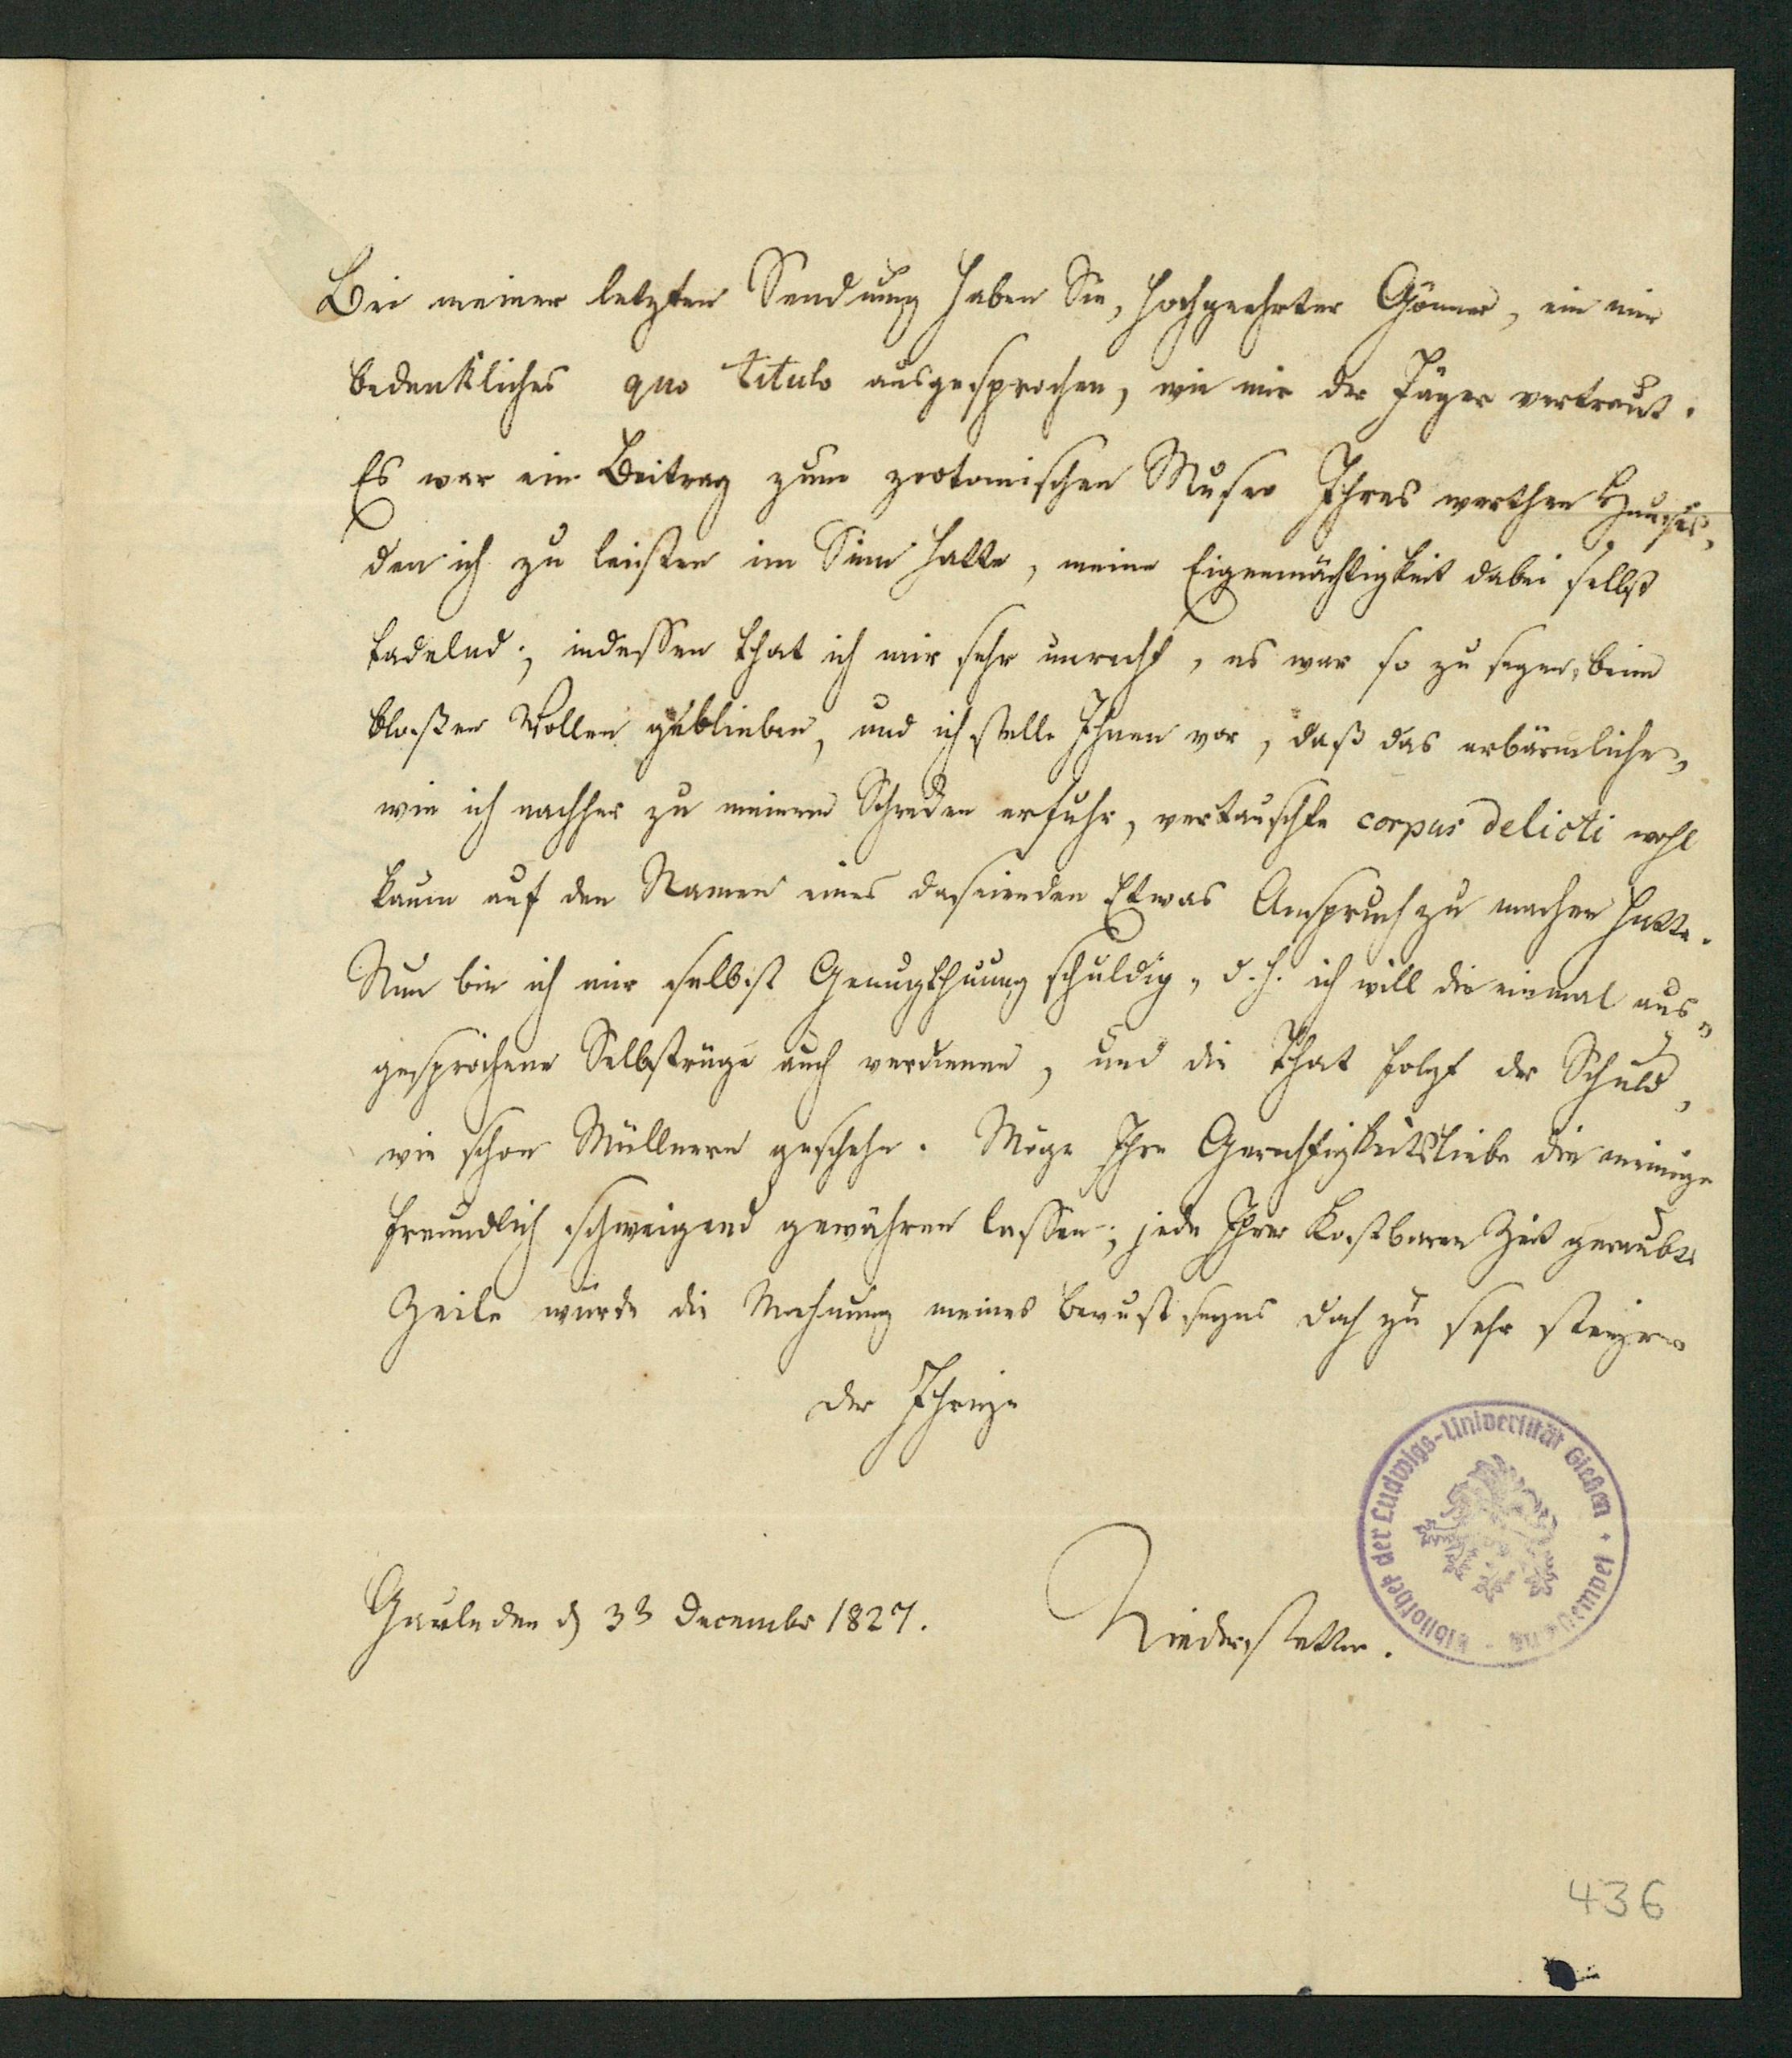 Bei meiner letzten Sendung haben Sie, hochgeehrter Gönner, ein mir
bedenkliches quo titulo ausgesprochen, wie mir der Jäger vertraut.
Es war ein Beitrag zum zootomischen Museo Ihres werthen Hauses,
den ich zu leisten im Sinn hatte, meine Eigenmächtigkeit dabei selbst
tadelnd; indessen that ich mir sehr unrecht, es war so zu sagen, beim
bloßen Wollen geblieben, und ich stelle Ihnen vor, daß das erbärmliche,
wie ich nachher zu meinem Schrecken erfuhr, vertauschte corpus delicti wohl
kaum auf den Namen eines daseienden Etwas Anspruch zu machen hatte.
Nun bin ich mir selbst Genugthuung schuldig, d. h. ich will die einmal aus=
gesprochene Selbstrüge auch verdienen, und die That folgt der Schuld,
wie schon Müllnern geschehn. Möge Ihre Gerechtigkeitsliebe die meinige
freundlich schweigend gewähren lassen; jede Ihrer kostbaren Zeit geraubte
Zeile würde die Mahnung meines Bewustseyns doch zu sehr steigern
der Ihrige
d 3t Decembr 1827.
Niederstetter.
Bibliothek der Ludwigs-Universität Gießen
436